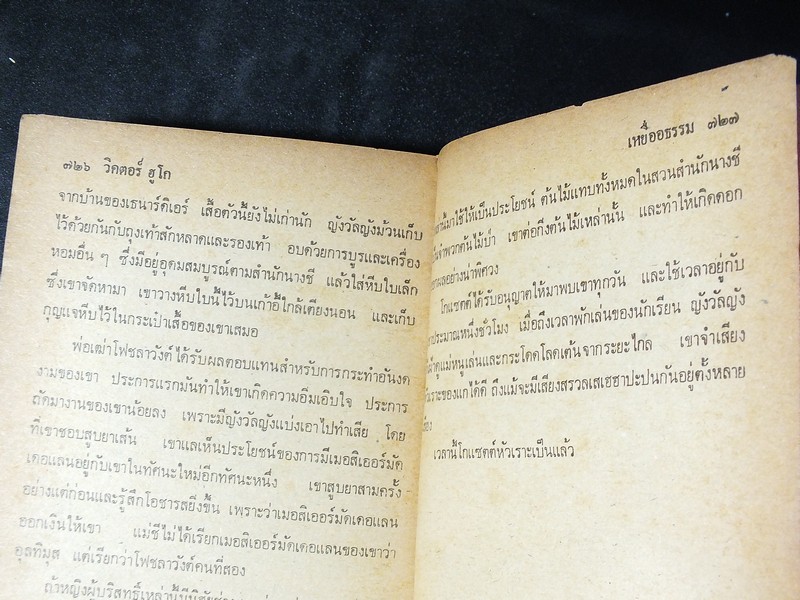 ๗๒๖ วิคตอร์ ฮูโก
จากบ้านของเธนาร์ดิเอร์ เสื้อตัวนี้ยังไม่เก่านัก ญังวัลญังม้วนเก็บ
ไว้ด้วยกันกับถุงเท้าสักหลาดและรองเท้า อบด้วยการบูรและเครื่อง
หอมอื่น ๆ ซึ่งมีอยู่อุดมสมบูรณ์ตามสำนักนางชี แล้วใส่หีบใบเล็ก
ซึ่งเขาจัดหามา เขาวางหีบใบนี้ไว้บนเก้าอี้ใกล้เตียงนอน และเก็บ
กุญแจหีบไว้ในกระเป๋าเสื้อของเขาเสมอ
พ่อเฒ่าโฟชลาวังต์ได้รับผลตอบแทนสำหรับการกระทำอันงด
งามของเขา ประการแรกมันทำให้เขาเกิดความอิ่มเอิบใจ ประการ
ถัดมางานของเขาน้อยลง เพราะมีญังวัลญังแบ่งเอาไปทำเสีย โดย
ที่เขาชอบสูบยาเส้น เขาแลเห็นประโยชน์ของการมีเมอสิเออร์มัด
เดอแลนอยู่กับเขาในทัศนะใหม่อีกทัศนะหนึ่ง เขาสูบยาสามครั้ง
อย่างแต่ก่อนและรู้สึกโอชารสยิ่งขึ้น เพราะว่าเมอสิเออร์มัดเดอแลน
ออกเงินให้เขา แม่ชีไม่ได้เรียกเมอสิเออร์มัดเดอแลนของเขาว่า
อุลทิมุส แต่เรียกว่าโฟชลาวังต์คนที่สอง
ถ้าหญิงผู้บริสุทธิ์เหล่านี้มีนิสัย
เหยื่ออธรรม ๗๒๗
มาใช้ให้เป็นประโยชน์ ต้นไม้แทบทั้งหมดในสวนสำนักนางชี
จำพวกต้นไม้ป่า เขาต่อกิ่งต้นไม้เหล่านั้น และทำให้เกิดดอก
ผลอย่างน่าพิศวง
โกแซตต์ได้รับอนุญาตให้มาพบเขาทุกวัน และใช้เวลาอยู่กับ
ประมาณหนึ่งชั่วโมง เมื่อถึงเวลาพักเล่นของนักเรียน ญังวัลญัง
ดูแม่หนูเล่นและกระโดดโลดเต้นจากระยะไกล เขาจำเสียง
ของแกได้ดี ถึงแม้จะมีเสียงสรวลเสเฮฮาปะปนกันอยู่ตั้งหลาย
เวลานี้โกแซตต์หัวเราะเป็นแล้ว